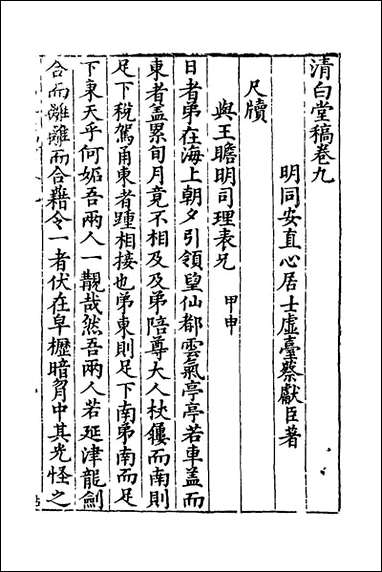 清白堂稿卷九
明同安直心居士虛臺蔡獻臣著
尺牘
與王瞻明司理表兄 甲申
日者弟在海上朝夕引領望仙都雲氣亭亭若車盖而
東者盖累旬月竟不相及及弟陪尊大人杖屨而南則
足下稅駕甬東者踵相接也弟東則足下南弟南而足
下東天乎何妬吾兩人一覯哉然吾兩人若延津龍劍
合而離離而合藉令一者伏在皁櫪暗匈中其光怪之